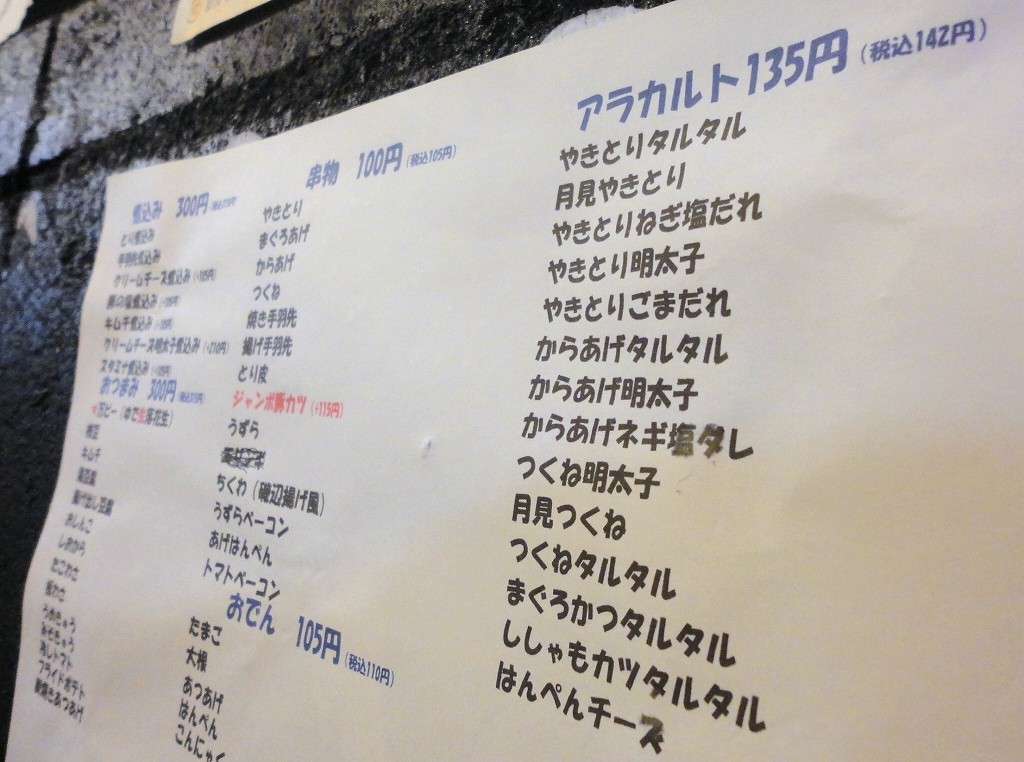 煮込み 300円
とり煮込み
手羽先煮込み
クリームチーズ煮込み (+105円)
キムチ煮込み
クリームチーズ明太子煮込み (+210円)
スタミナ煮込み
おつまみ 300円
豆ピー (ゆで生落花生)
枝豆
キムチ
揚げ出し豆腐
おしんこ
しおから
たこわさ
板わさ
冷しトマト
フライドポテト
串物 100円 (税込105円)
やきとり
まぐろあげ
からあげ
つくね
焼き手羽先
揚げ手羽先
とり皮
ジャンボ豚カツ (+115円)
うずら
ちくわ (磯辺揚げ風)
うずらベーコン
あげはんぺん
トマトベーコン
おでん 105円 (税込110円)
たまご
大根
あつあげ
はんぺん
こんにゃく
アラカルト135円 (税込142円)
やきとりタルタル
月見やきとり
やきとりねぎ塩だれ
やきとり明太子
やきとりごまだれ
からあげタルタル
からあげ明太子
からあげネギ塩ダレ
つくね明太子
月見つくね
つくねタルタル
まぐろかつタルタル
ししゃもカツタルタル
はんぺんチーズ